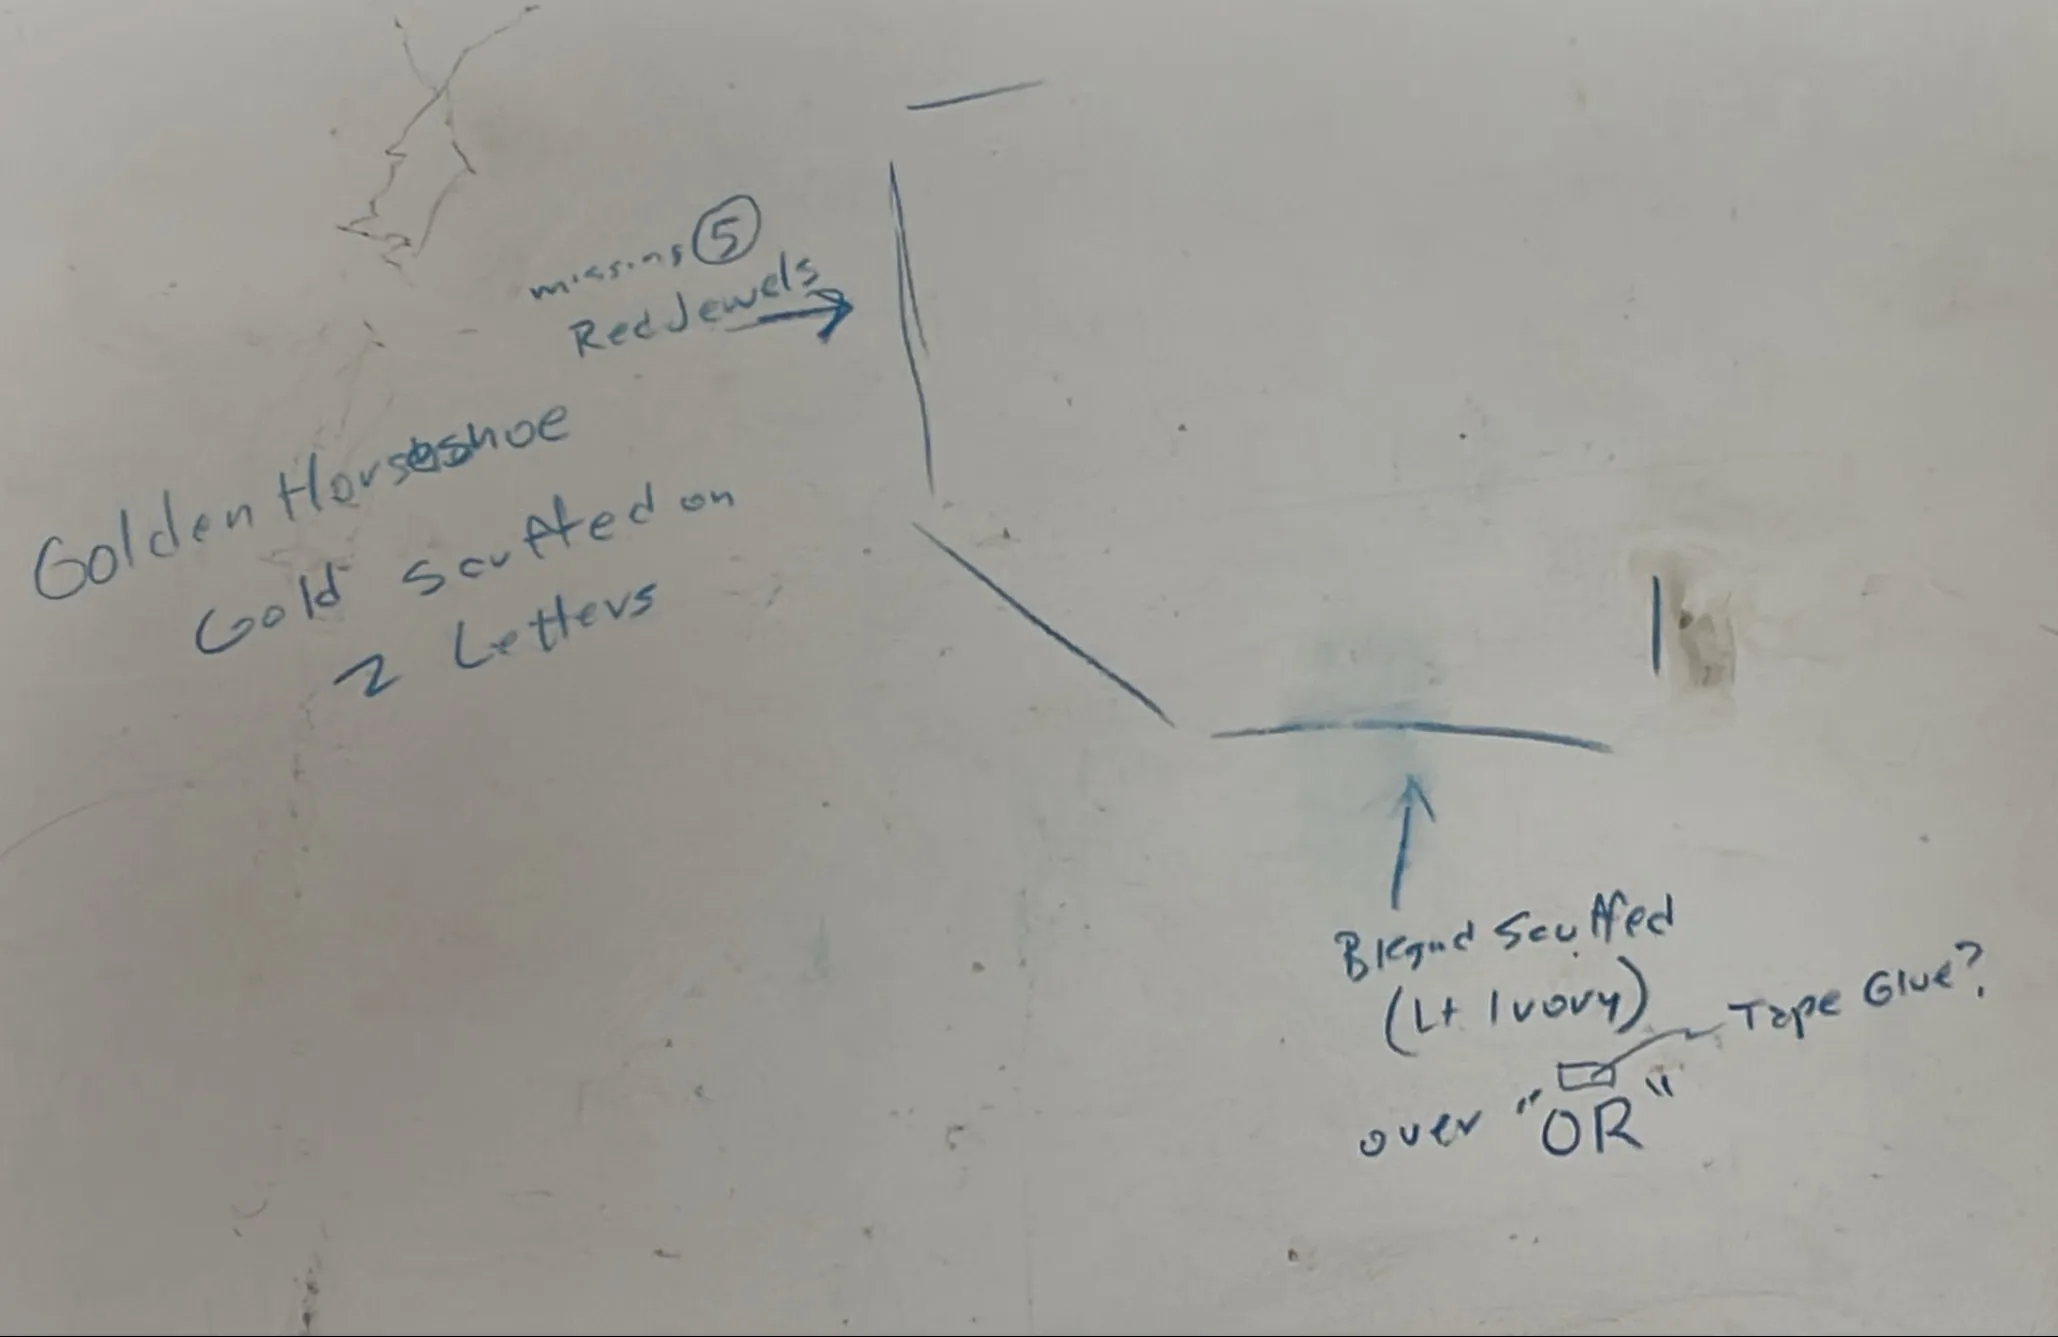 missing 5
Red Jewels
Golden Horseshoe
Gold scuffed on
2 Letters
Bkgnd Scuffed
(Lt Ivory)
Tape Glue?
over "OR"